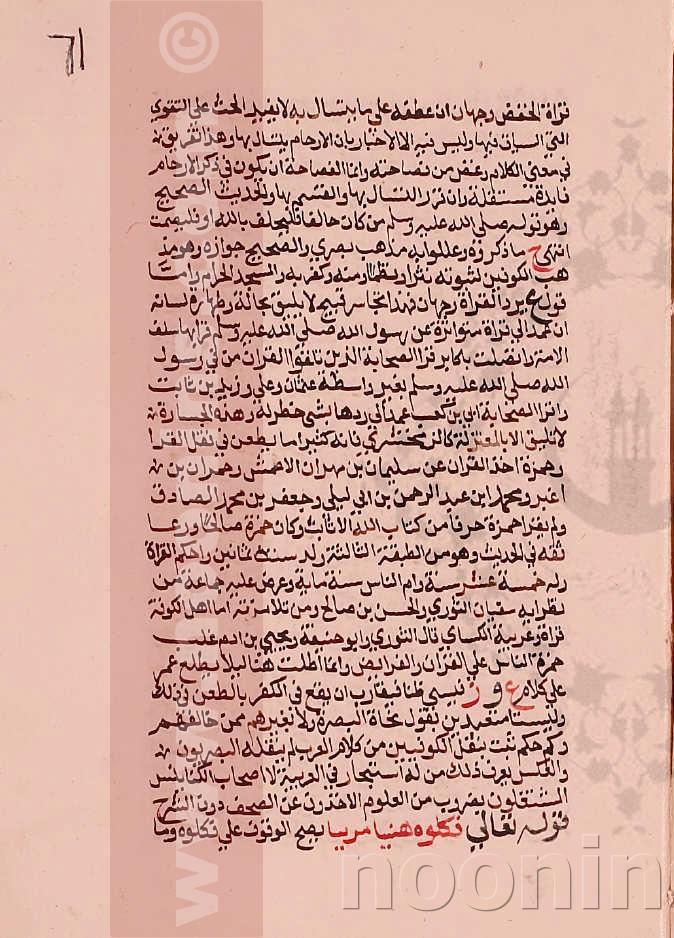 61
قراة الخفض وجهان ان عطفه على ما يتسال به لا يفيد الحث على التقوى
التي السياق فيها وليس فيه الا الاخبار بان الارحام يتسال بها وهذا تفريق
في معنى الكلام وغض من فصاحته وانما الفصاحة ان يكون في ذكر الارحام
فايدة مستقلة وان تقرر التسال بها والقسم بها والحديث الصحيح
وهو قوله صلى الله عليه وسلم من كان حالفا فليحلف بالله او ليصمت
انتهى ح ما ذكروه وعللوا به مذهب بصري والصحيح جوازه وهو مذ
هب الكوفيين لثبوته نثرا ونظما ومنه وكفر به والمسجد الحرام واما
قول ع يرد القراة وجهان فهذا تجاسر قبيح لا يليق بحاله وطهارة لسانه
ان عمد الى قراة متواترة عن رسول الله صلى الله عليه وسلم قرا بها سلف
الامة واتصلت باكابر قرا الصحابة الذين تلقوا القران من في رسول
الله صلى الله عليه وسلم بغير واسطة عثمان وعلي وزيد بن ثابت
واقرا الصحابة ابي بن كعب عمد الى ردها بشي خطر له وهذه الجسارة
لا تليق الا بالمعتزلة كالزمخشري فانه كثيرا ما يطعن في نقل القرا
وحمزة اخذ القران عن سليمان بن مهران الاعمش وحمران بن
اعين ومحمد ابن عبد الرحمن بن ابي ليلى وجعفر بن محمد الصادق
ولم يقرا حمزة حرفا من كتاب الله الا وكان حمزة صالحا ورعا
ثقة في الحديث وهو من الطبقة الثالثة ولد سنة ثمانين واحكم القراة
وله خمسة عشر سنة وام الناس سنة ماية وعرض عليه جماعة من
نظرايه سفيان الثوري والحسن بن صالح ومن تلامذته امام اهل الكوفة
قراة وعربية الكساي قال الثوري وابو حنيفة ويحيى بن ادم غلب
حمزة الناس على القران والفرايض وانما اطلت هنا ليلا يطلع غمر
على كلام ع و ز فيسي ظنا فيقارب ان يقع في الكفر بالطعن في ذلك
ولسنا متعبدين بقول نحاة البصرة ولا بغيرهم ممن خالفهم
وكم حكم ثبت بنقل الكوفيين من كلام العرب لم ينقله البصريون
والعكس يعرف ذلك من له استبحار في العربية لا اصحاب الكنانيش
المشتغلون بضروب من العلوم الاخذون عن الصحف دون الشرح
قوله تعالى فكلوه هنيا مريا يصح الوقوف على فكلوه وما
www.
©
noonin